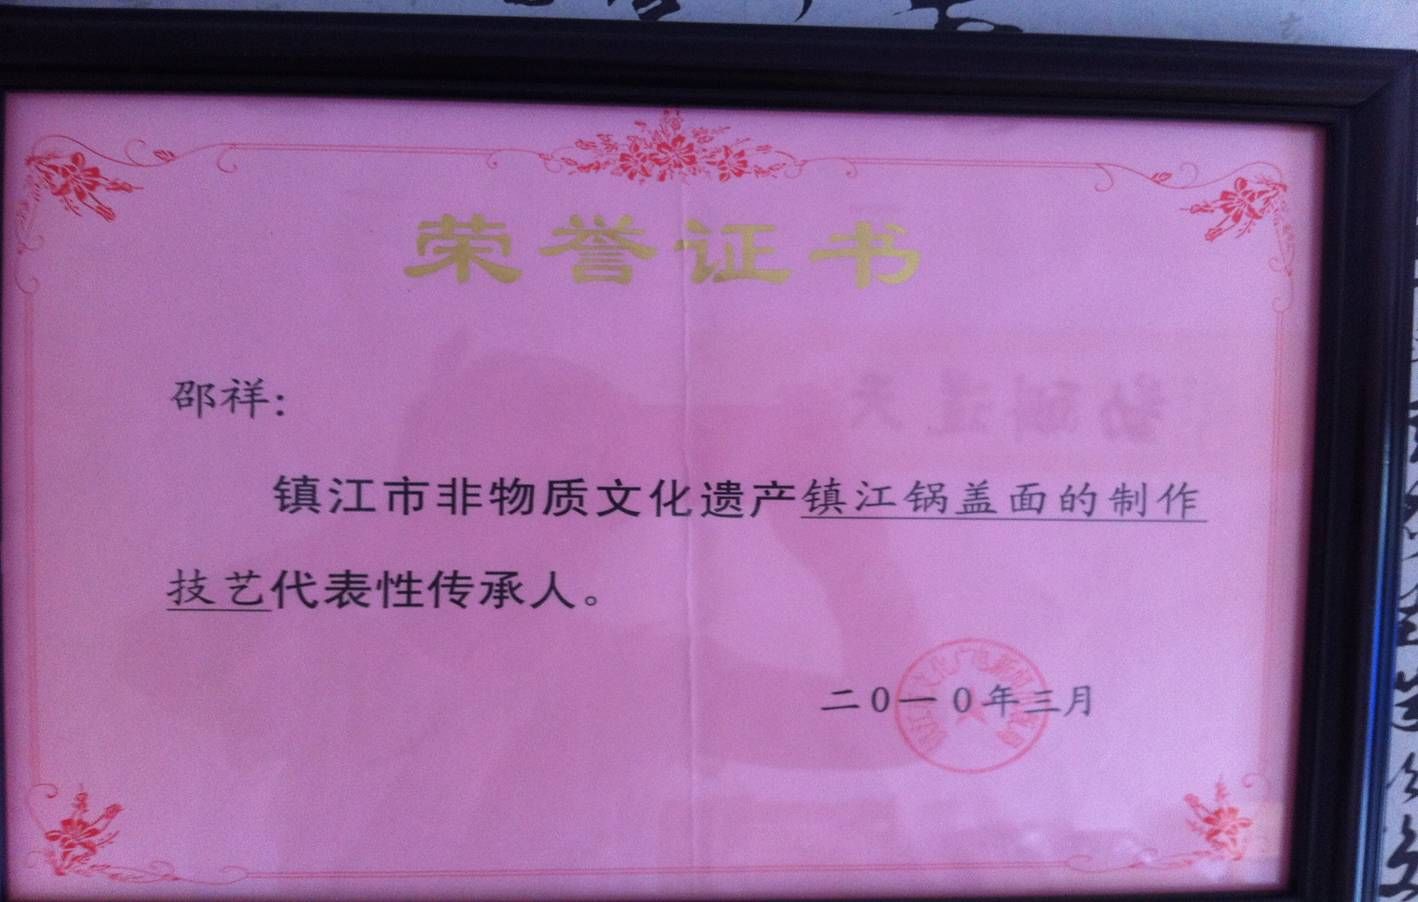 荣誉证书
邵祥：
镇江市非物质文化遗产镇江锅盖面的制作
技艺代表性传承人。
二〇一〇年三月